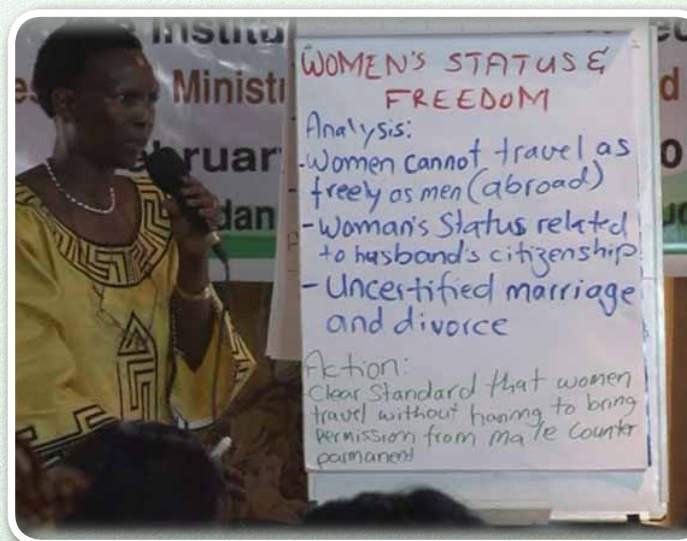 Institu
Ministr
d
bruar
0
dan
WOMEN'S STATUS &
FREEDOM
Analysis:
-Women cannot travel as
freely as men (abroad)
-Woman's Status related
to husband's citizenship
-Uncertified marriage
and divorce
Action:
Clear Standard that women
travel without having to bring
permission from male counter
parmanent